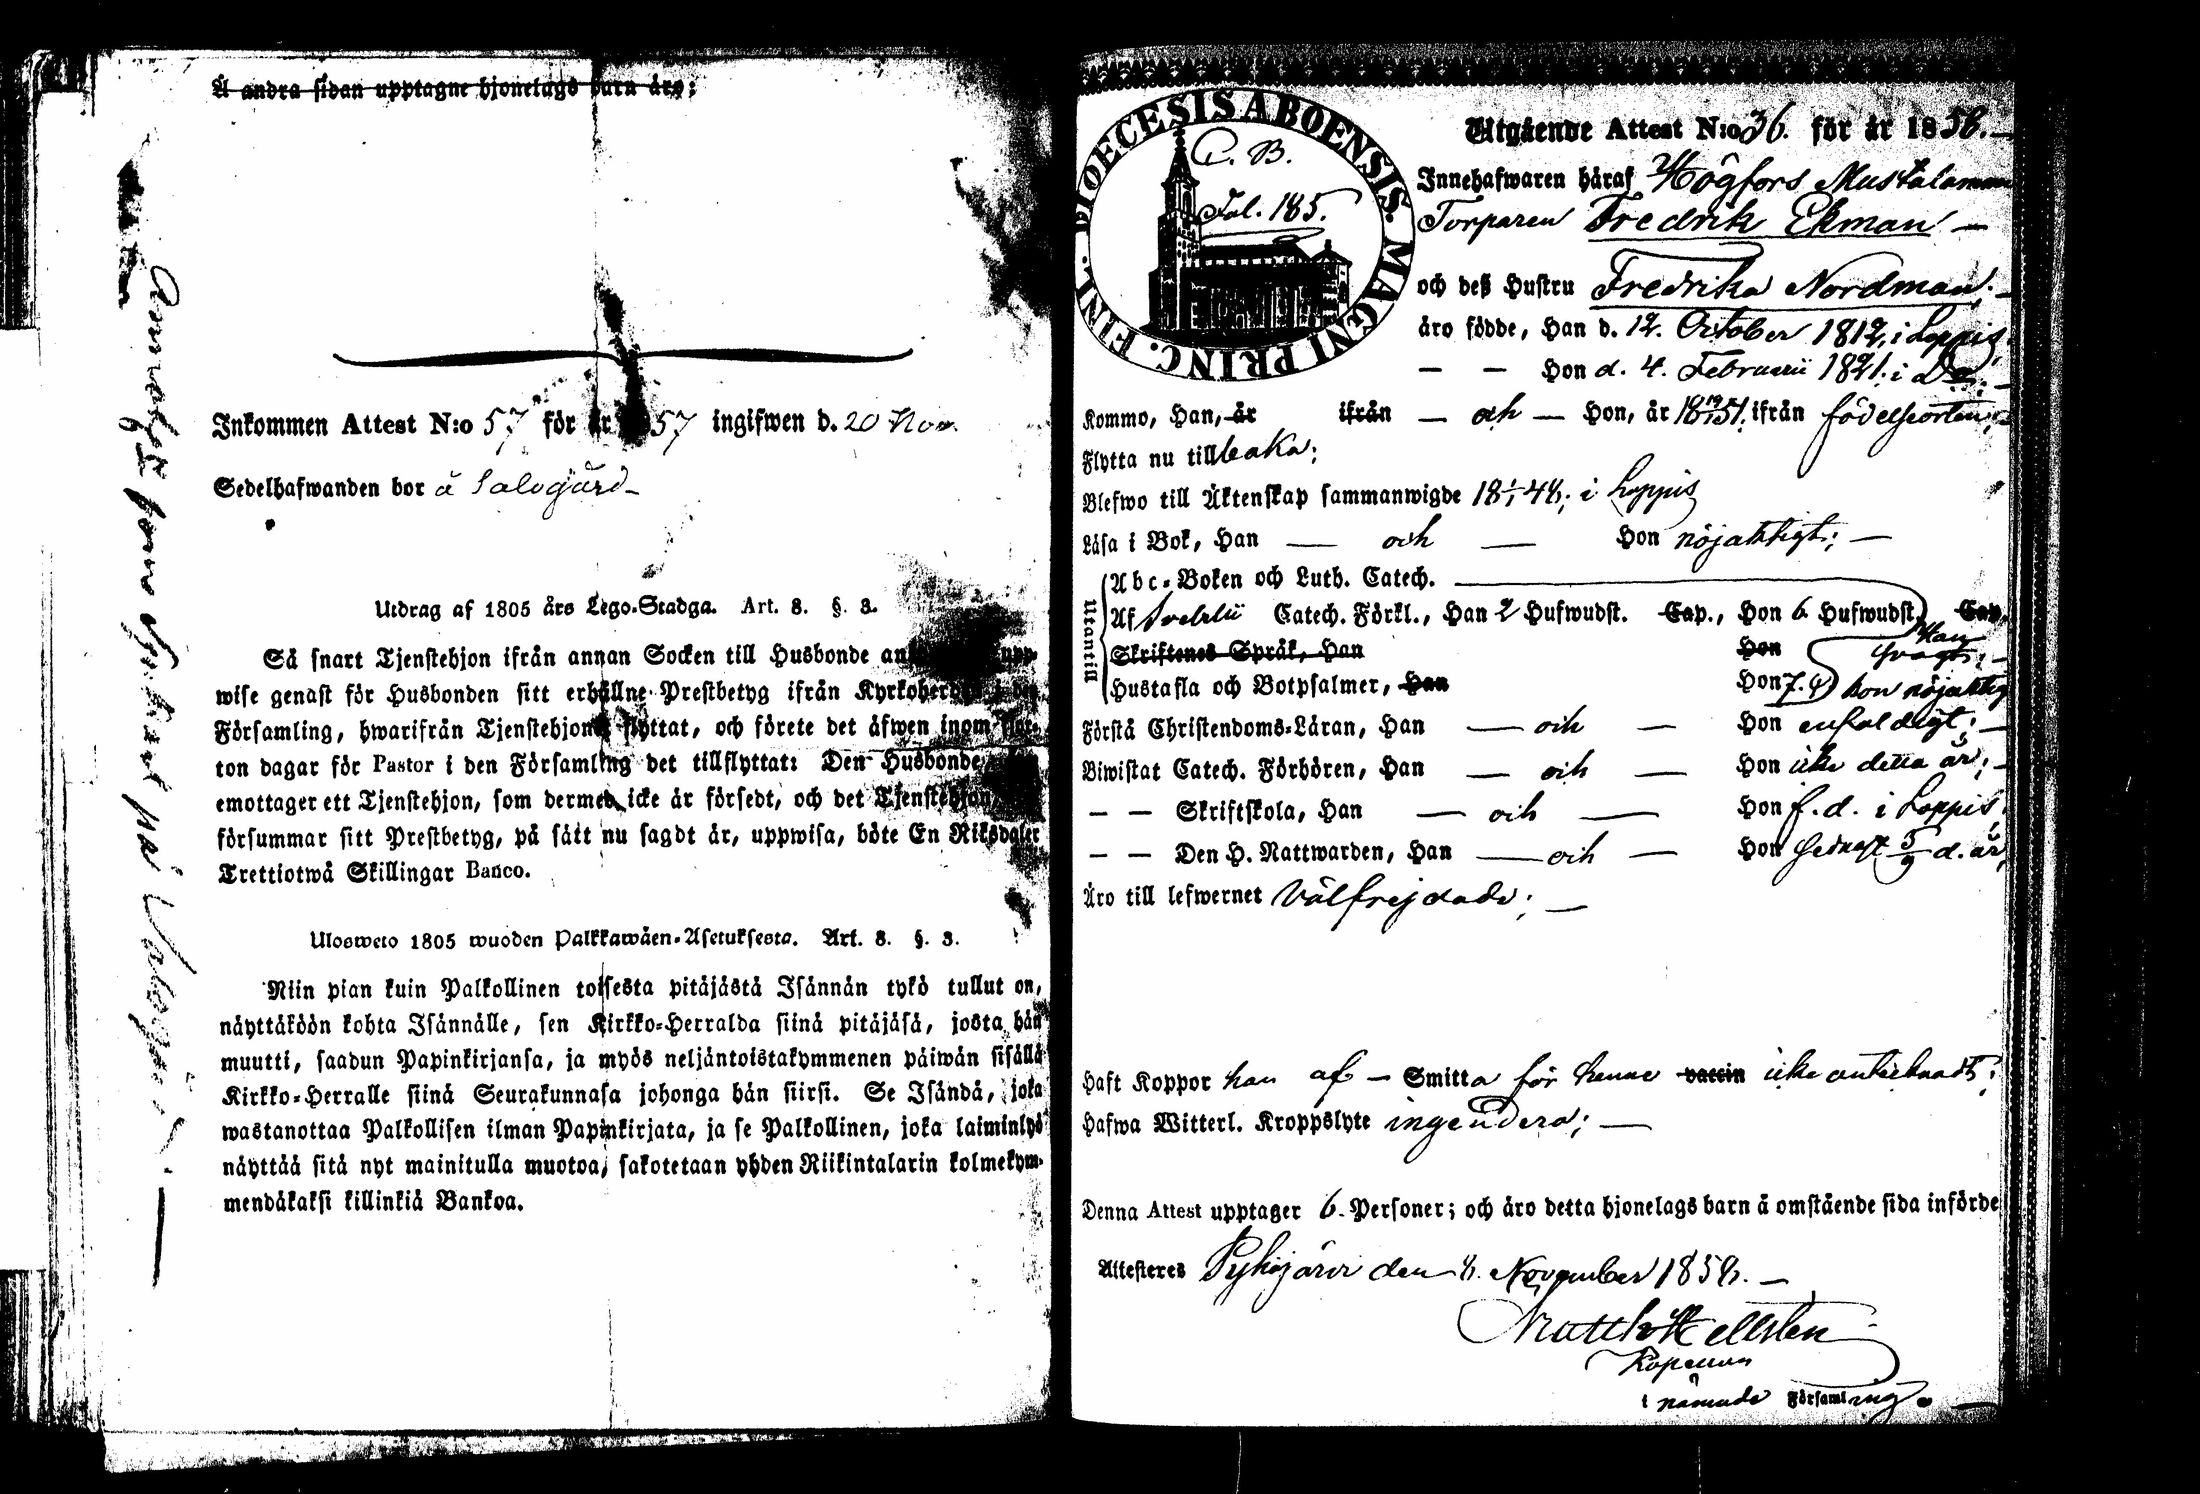 Å andra sidan upptagne hjonelags barn äro;
Inkommen Attest N:o 57 för år 57 ingifwen d. 20 Nov.
Sedelhafwanden bor å Salogård
Utdrag af 1805 års Lego-Stadga. Art. 8. §. 3.
Så snart Tjenstehjon ifrån annan Socken till Husbonde
wise genast för Husbonden sitt erhållne Prestbetyg ifrån Kyrkoherden i den
Församling, hwarifrån Tjenstehjonet flyttat, och förete det äfwen inom
ton dagar för Pastor i den Församling det tillflyttat: Den Husbonde
emottager ett Tjenstehjon, som dermed icke är försedt, och det Tjenstehjon,
försummar sitt Prestbetyg, på sätt nu sagdt är, uppwisa, böte En Riksdaler
Trettiotwå Skillingar Banco.
Ulosweto 1805 wuoden Palkkawäen-Asetuksesta. Art. 8. §. 3.
Niin pian kuin Palkollinen toisesta pitäjästä Isännän tykö tullut on,
näyttäköön kohta Isännälle, sen Kirkko-Herralda siinä pitäjäsä, josta hän
muutti, saadun Papinkirjansa, ja myös neljäntoistakymmenen päiwän sisällä
Kirkko-Herralle siinä Seurakunnasa johonga hän siirsi. Se Isändä, joka
wastanottaa Palkollisen ilman Papinkirjata, ja se Palkollinen, joka laiminlyö
näyttää sitä nyt mainitulla muotoa, sakotetaan yhden Riikintalarin kolmekym-
mendäkaksi killinkiä Bankoa.
DIOECESIS ABOENSIS. MAGNI PRINC. FINL.
C. B.
Fol. 185.
Utgående Attest N:o 36. för år 1858.
Innehafwaren häraf Högfors Mustalamm
Torparen Fredrik Ekman
och deß Hustru Fredrika Nordman.
äro födde, Han d. 12. October 1812, i Loppis,
— — Hon d. 4. Februarii 1821. i Do.
Kommo, Han, är ifrån — och — Hon, år 1851. ifrån födelseorten;
Flytta nu tillbaka;
Blefwo till Äktenskap sammanwigde i Loppis
Läsa i Bok, Han — och — Hon nöjaktigt;
Utantill
Abc-Boken och Luth. Catech.
Af Svebelii Catech. Förkl., Han 2 Hufwudst. Cap., Hon 6 Hufwudst. Cap.
Skriftenes Språk, Han Hon Han svagt;
Hustafla och Botpsalmer, Han Hon hon nöjaktig
Förstå Christendoms-Läran, Han — och — Hon enfaldigt;
Biwistat Catech. Förhören, Han — och — Hon icke detta år;
— — Skriftskola, Han — och — Hon f. d. i Loppis,
— — Den H. Nattwarden, Han — och — Hon sednast 5/9 d. år,
Äro till lefwernet Välfrejdade;
Haft Koppor han af — Smitta för henne vaccin icke antecknadt;
Hafwa Witterl. Kroppslyte ingendera;
Denna Attest upptager 6. Personer; och äro detta hjonelags barn å omstående sida införde
Attesteres Pyhäjärvi den 8. November 1858.
Matth Hellsten
Kapellan
i nämnde Församling.